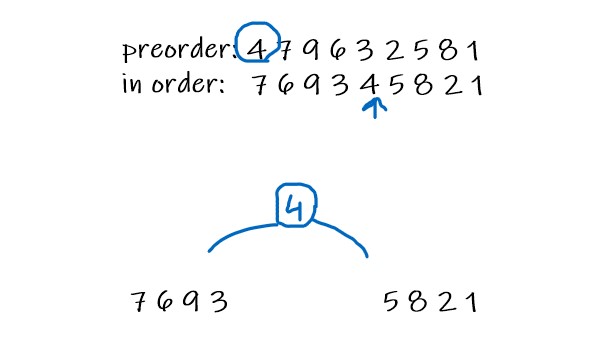 preorder: 4 7 9 6 3 2 5 8 1
in order: 7 6 9 3 4 5 8 2 1
4
7 6 9 3 5 8 2 1